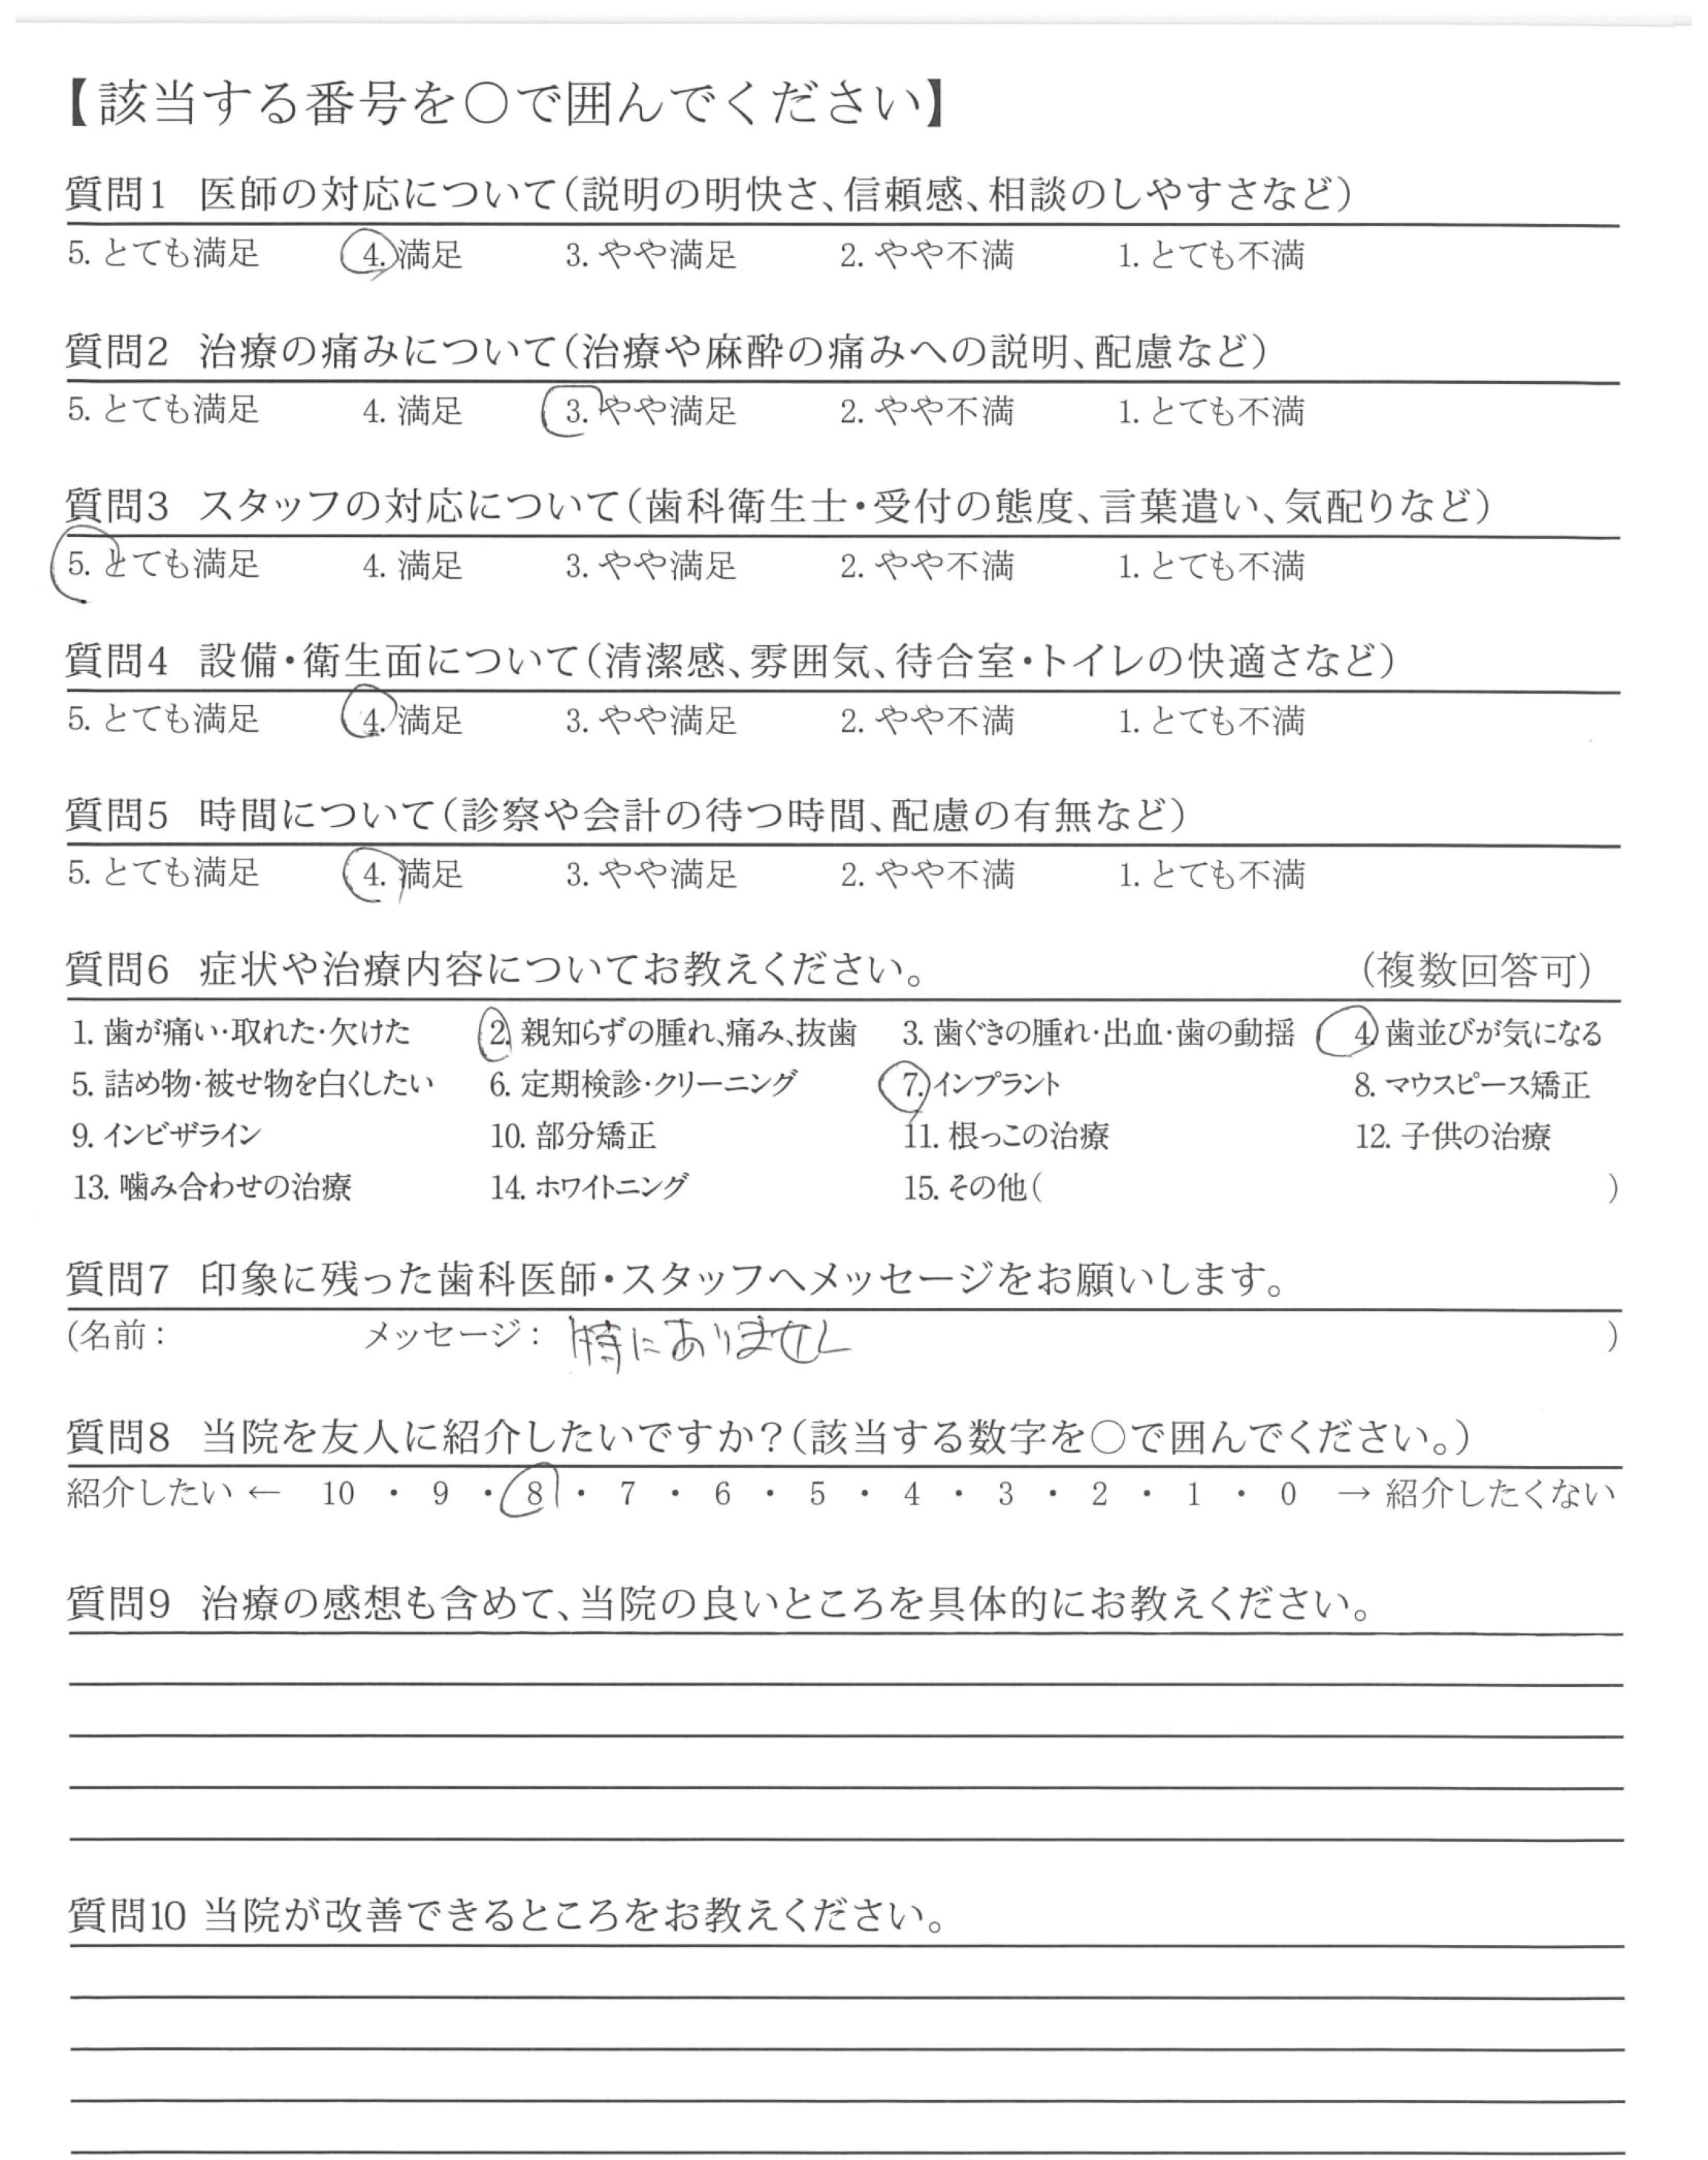 【該当する番号を〇で囲んでください】
質問1 医師の対応について(説明の明快さ、信頼感、相談のしやすさなど)
5. とても満足 4. 満足 3. やや満足 2. やや不満 1. とても不満
質問2 治療の痛みについて(治療や麻酔の痛みへの説明、配慮など)
5. とても満足 4. 満足 3. やや満足 2. やや不満 1. とても不満
質問3 スタッフの対応について(歯科衛生士・受付の態度、言葉遣い、気配りなど)
5. とても満足 4. 満足 3. やや満足 2. やや不満 1. とても不満
質問4 設備・衛生面について(清潔感、雰囲気、待合室・トイレの快適さなど)
5. とても満足 4. 満足 3. やや満足 2. やや不満 1. とても不満
質問5 時間について(診察や会計の待つ時間、配慮の有無など)
5. とても満足 4. 満足 3. やや満足 2. やや不満 1. とても不満
質問6 症状や治療内容についてお教えください。 (複数回答可)
1. 歯が痛い・取れた・欠けた 2. 親知らずの腫れ、痛み、抜歯 3. 歯ぐきの腫れ・出血・歯の動揺 4. 歯並びが気になる
5. 詰め物・被せ物を白くしたい 6. 定期検診・クリーニング 7. インプラント 8. マウスピース矯正
9. インビザライン 10. 部分矯正 11. 根っこの治療 12. 子供の治療
13. 噛み合わせの治療 14. ホワイトニング 15. その他( )
質問7 印象に残った歯科医師・スタッフへメッセージをお願いします。
(名前: メッセージ: 特にありません )
質問8 当院を友人に紹介したいですか?(該当する数字を〇で囲んでください。)
紹介したい ← 10 ・ 9 ・ 8 ・ 7 ・ 6 ・ 5 ・ 4 ・ 3 ・ 2 ・ 1 ・ 0 → 紹介したくない
質問9 治療の感想も含めて、当院の良いところを具体的にお教えください。
質問10 当院が改善できるところをお教えください。